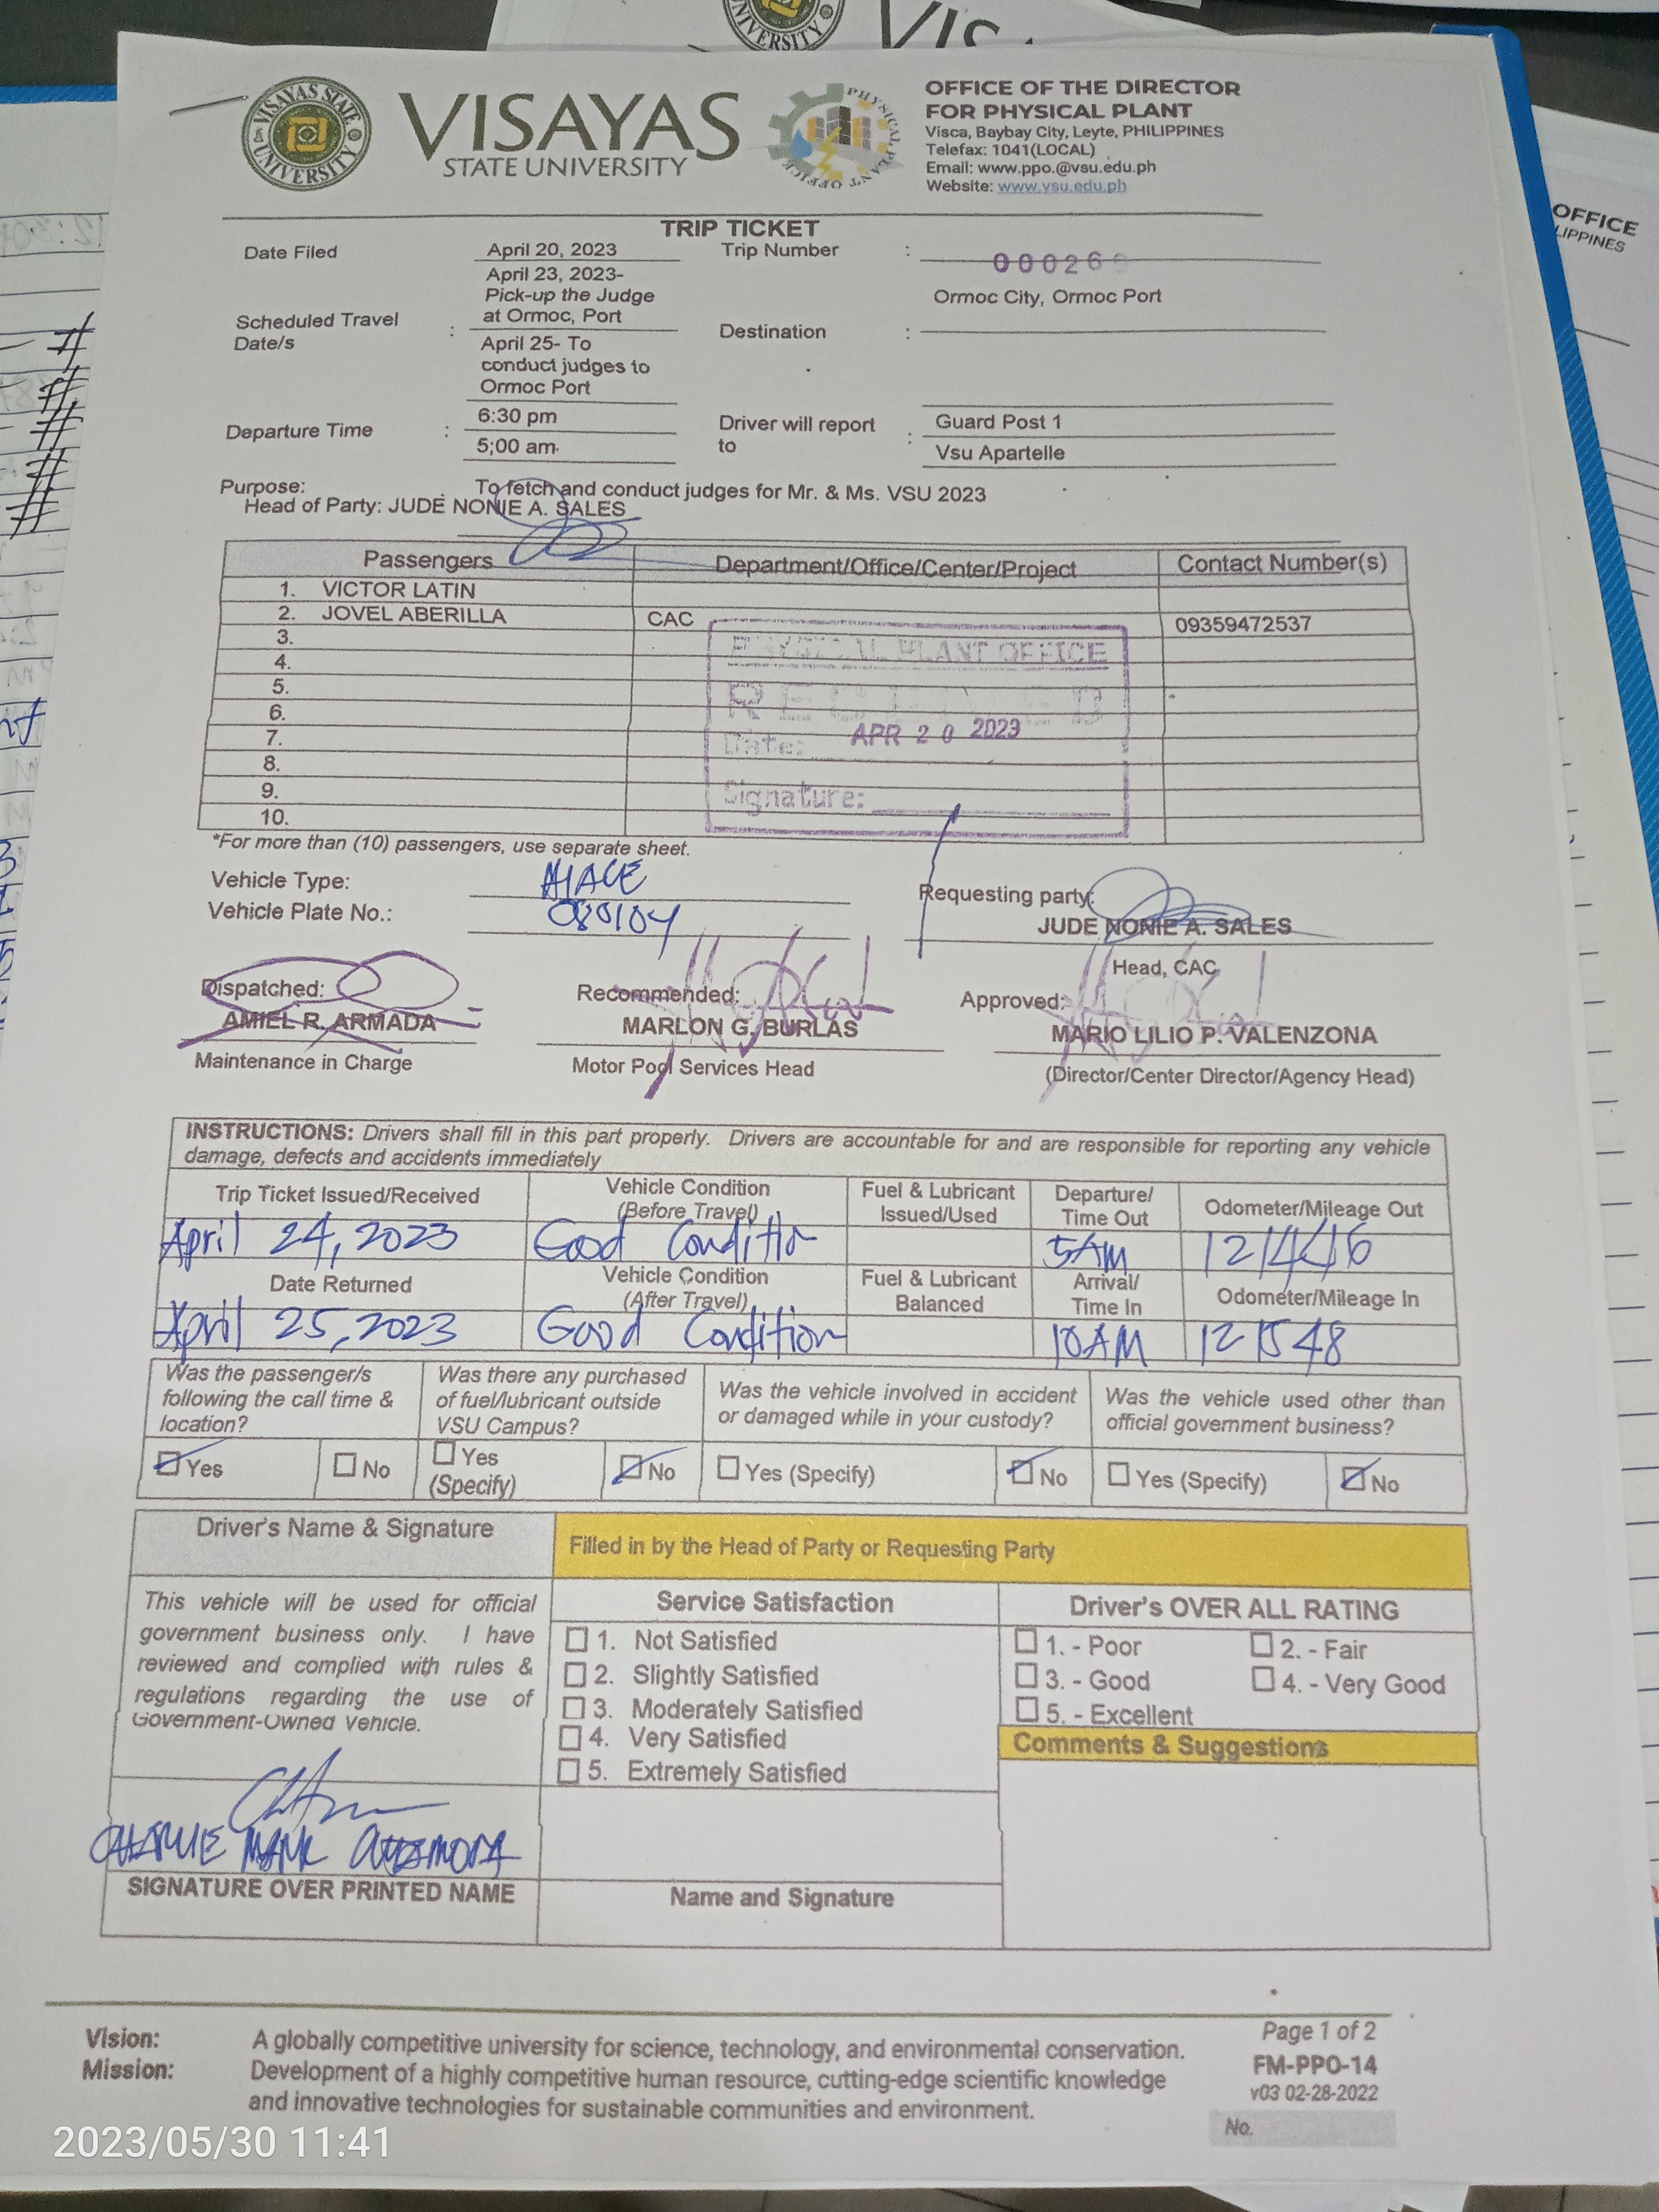 VISAYAS
STATE UNIVERSITY
VISAYAS STATE UNIVERSITY
PHYSICAL PLANT OFFICE
OFFICE OF THE DIRECTOR
FOR PHYSICAL PLANT
Visca, Baybay City, Leyte, PHILIPPINES
Telefax: 1041(LOCAL)
Email: www.ppo.@vsu.edu.ph
Website: www.vsu.edu.ph
TRIP TICKET
Date Filed April 20, 2023 Trip Number : 00026
Scheduled Travel Date/s : April 23, 2023-
Pick-up the Judge
at Ormoc, Port
April 25- To
conduct judges to
Ormoc Port
Destination : Ormoc City, Ormoc Port
Departure Time : 6:30 pm
5;00 am
Driver will report to : Guard Post 1
Vsu Apartelle
Purpose: To fetch and conduct judges for Mr. & Ms. VSU 2023
Head of Party: JUDE NONIE A. SALES
Passengers Department/Office/Center/Project Contact Number(s)
1. VICTOR LATIN
2. JOVEL ABERILLA CAC 09359472537
3.
4.
5.
6.
7.
8.
9.
10.
PHYSICAL PLANT OFFICE
RECEIVED
Date: APR 20 2023
Signature:
*For more than (10) passengers, use separate sheet.
Vehicle Type: HIACE
Vehicle Plate No.: 080104
Requesting party:
JUDE NONIE A. SALES
Head, CAC
Dispatched:
AMIEL R. ARMADA
Maintenance in Charge
Recommended:
MARLON G. BURLAS
Motor Pool Services Head
Approved:
MARIO LILIO P. VALENZONA
(Director/Center Director/Agency Head)
INSTRUCTIONS: Drivers shall fill in this part properly. Drivers are accountable for and are responsible for reporting any vehicle
damage, defects and accidents immediately
Trip Ticket Issued/Received Vehicle Condition (Before Travel) Fuel & Lubricant Issued/Used Departure/ Time Out Odometer/Mileage Out
April 24, 2023 Good Conditio 5AM 121446
Date Returned Vehicle Condition (After Travel) Fuel & Lubricant Balanced Arrival/ Time In Odometer/Mileage In
April 25, 2023 Good Condition 10AM 121548
Was the passenger/s
following the call time &
location?
Was there any purchased
of fuel/lubricant outside
VSU Campus?
Was the vehicle involved in accident
or damaged while in your custody?
Was the vehicle used other than
official government business?
Yes No Yes (Specify) No Yes (Specify) No Yes (Specify) No
Driver's Name & Signature
Filled in by the Head of Party or Requesting Party
This vehicle will be used for official
government business only. I have
reviewed and complied with rules &
regulations regarding the use of
Government-Owned Vehicle.
Service Satisfaction
1. Not Satisfied
2. Slightly Satisfied
3. Moderately Satisfied
4. Very Satisfied
5. Extremely Satisfied
Driver's OVER ALL RATING
1. - Poor 2. - Fair
3. - Good 4. - Very Good
5. - Excellent
Comments & Suggestions
CHARLIE MARK
SIGNATURE OVER PRINTED NAME
Name and Signature
Vision: A globally competitive university for science, technology, and environmental conservation.
Mission: Development of a highly competitive human resource, cutting-edge scientific knowledge
and innovative technologies for sustainable communities and environment.
Page 1 of 2
FM-PPO-14
v03 02-28-2022
No.
2023/05/30 11:41
OFFICE
LIPPINES